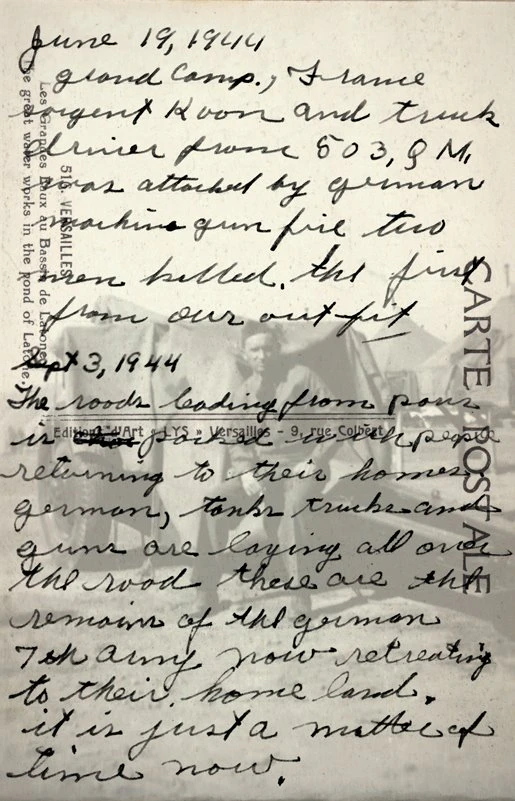 June 19, 1944
grand Camp., France
sorgent Koon and truck
driver from 503, Q M,
was attacked by german
machine gun fire two
men killed. the first
from our out fit
Sept 3, 1944
The roods leading from paris
is packed with people
retuining to their homes
german, tanks trucks and
guns are laying all over
the road these are the
remains of the german
7th army now retreating
to their home land.
it is just a matter of
time now.
516. VERSAILLES
Les Grandes Eaux au Bassin de Latone
The great water works in the pond of Latone.
Editions d'Art « LYS » Versailles - 9, rue Colbert
CARTE POSTALE